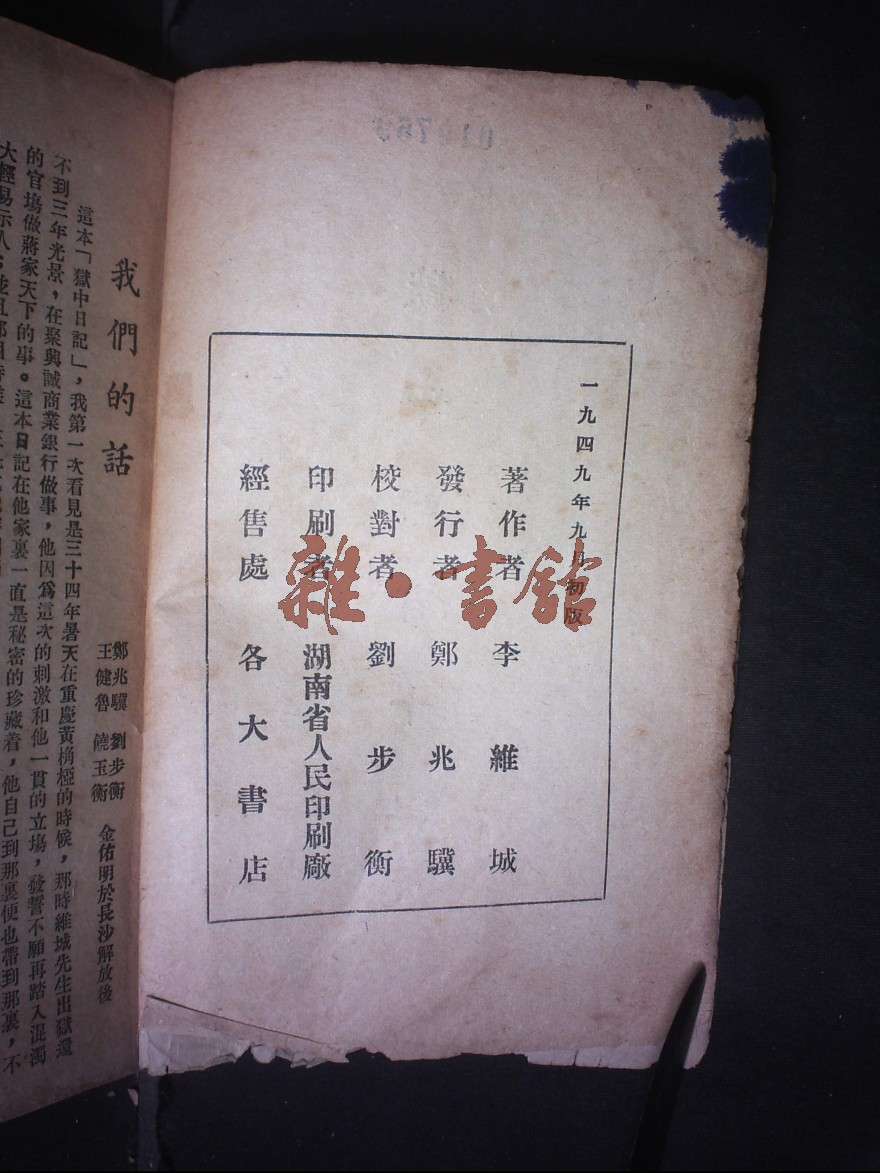 一九四九年九月初版
著作者 李維城
發行者 鄭兆驥
校對者 劉步衡
印刷者 湖南省人民印刷廠
經售處 各大書店
雜·書館
我們的話
鄭兆驥 劉步衡
王健魯 饒玉衡
金佑明於長沙解放後
這本「獄中日記」，我第一次看見是三十四年暑天在重慶黃桷椏的時候，那時維城先生出獄還
不到三年光景，在聚興誠商業銀行做事，他因爲這次的刺激和他一貫的立塲，發誓不願再踏入混濁
的官塲做蔣家天下的事。這本日記在他家裏一直是秘密的珍藏着，他自己到那裏便也帶到那裏，不
大輕易示人，並且